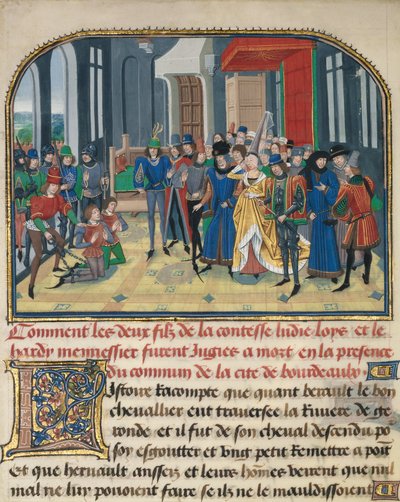 Comment les deux filz de la contesse ludie loys et le
hardy mennessier furent Jugies a mort en la presence
du commun de la cite de bourdeaulx
L Istoire Racompte que quant berault le bon
chevallier eut traversee la Riuere de gi
ronde et il fut de son cheval descendu po
soy esgoutter et ung petit Remettre a poit
Et que hernault ansseis et leurs hōmes veirent que nul
mal ne luy pouoient faire se ilz ne le mauldissoient